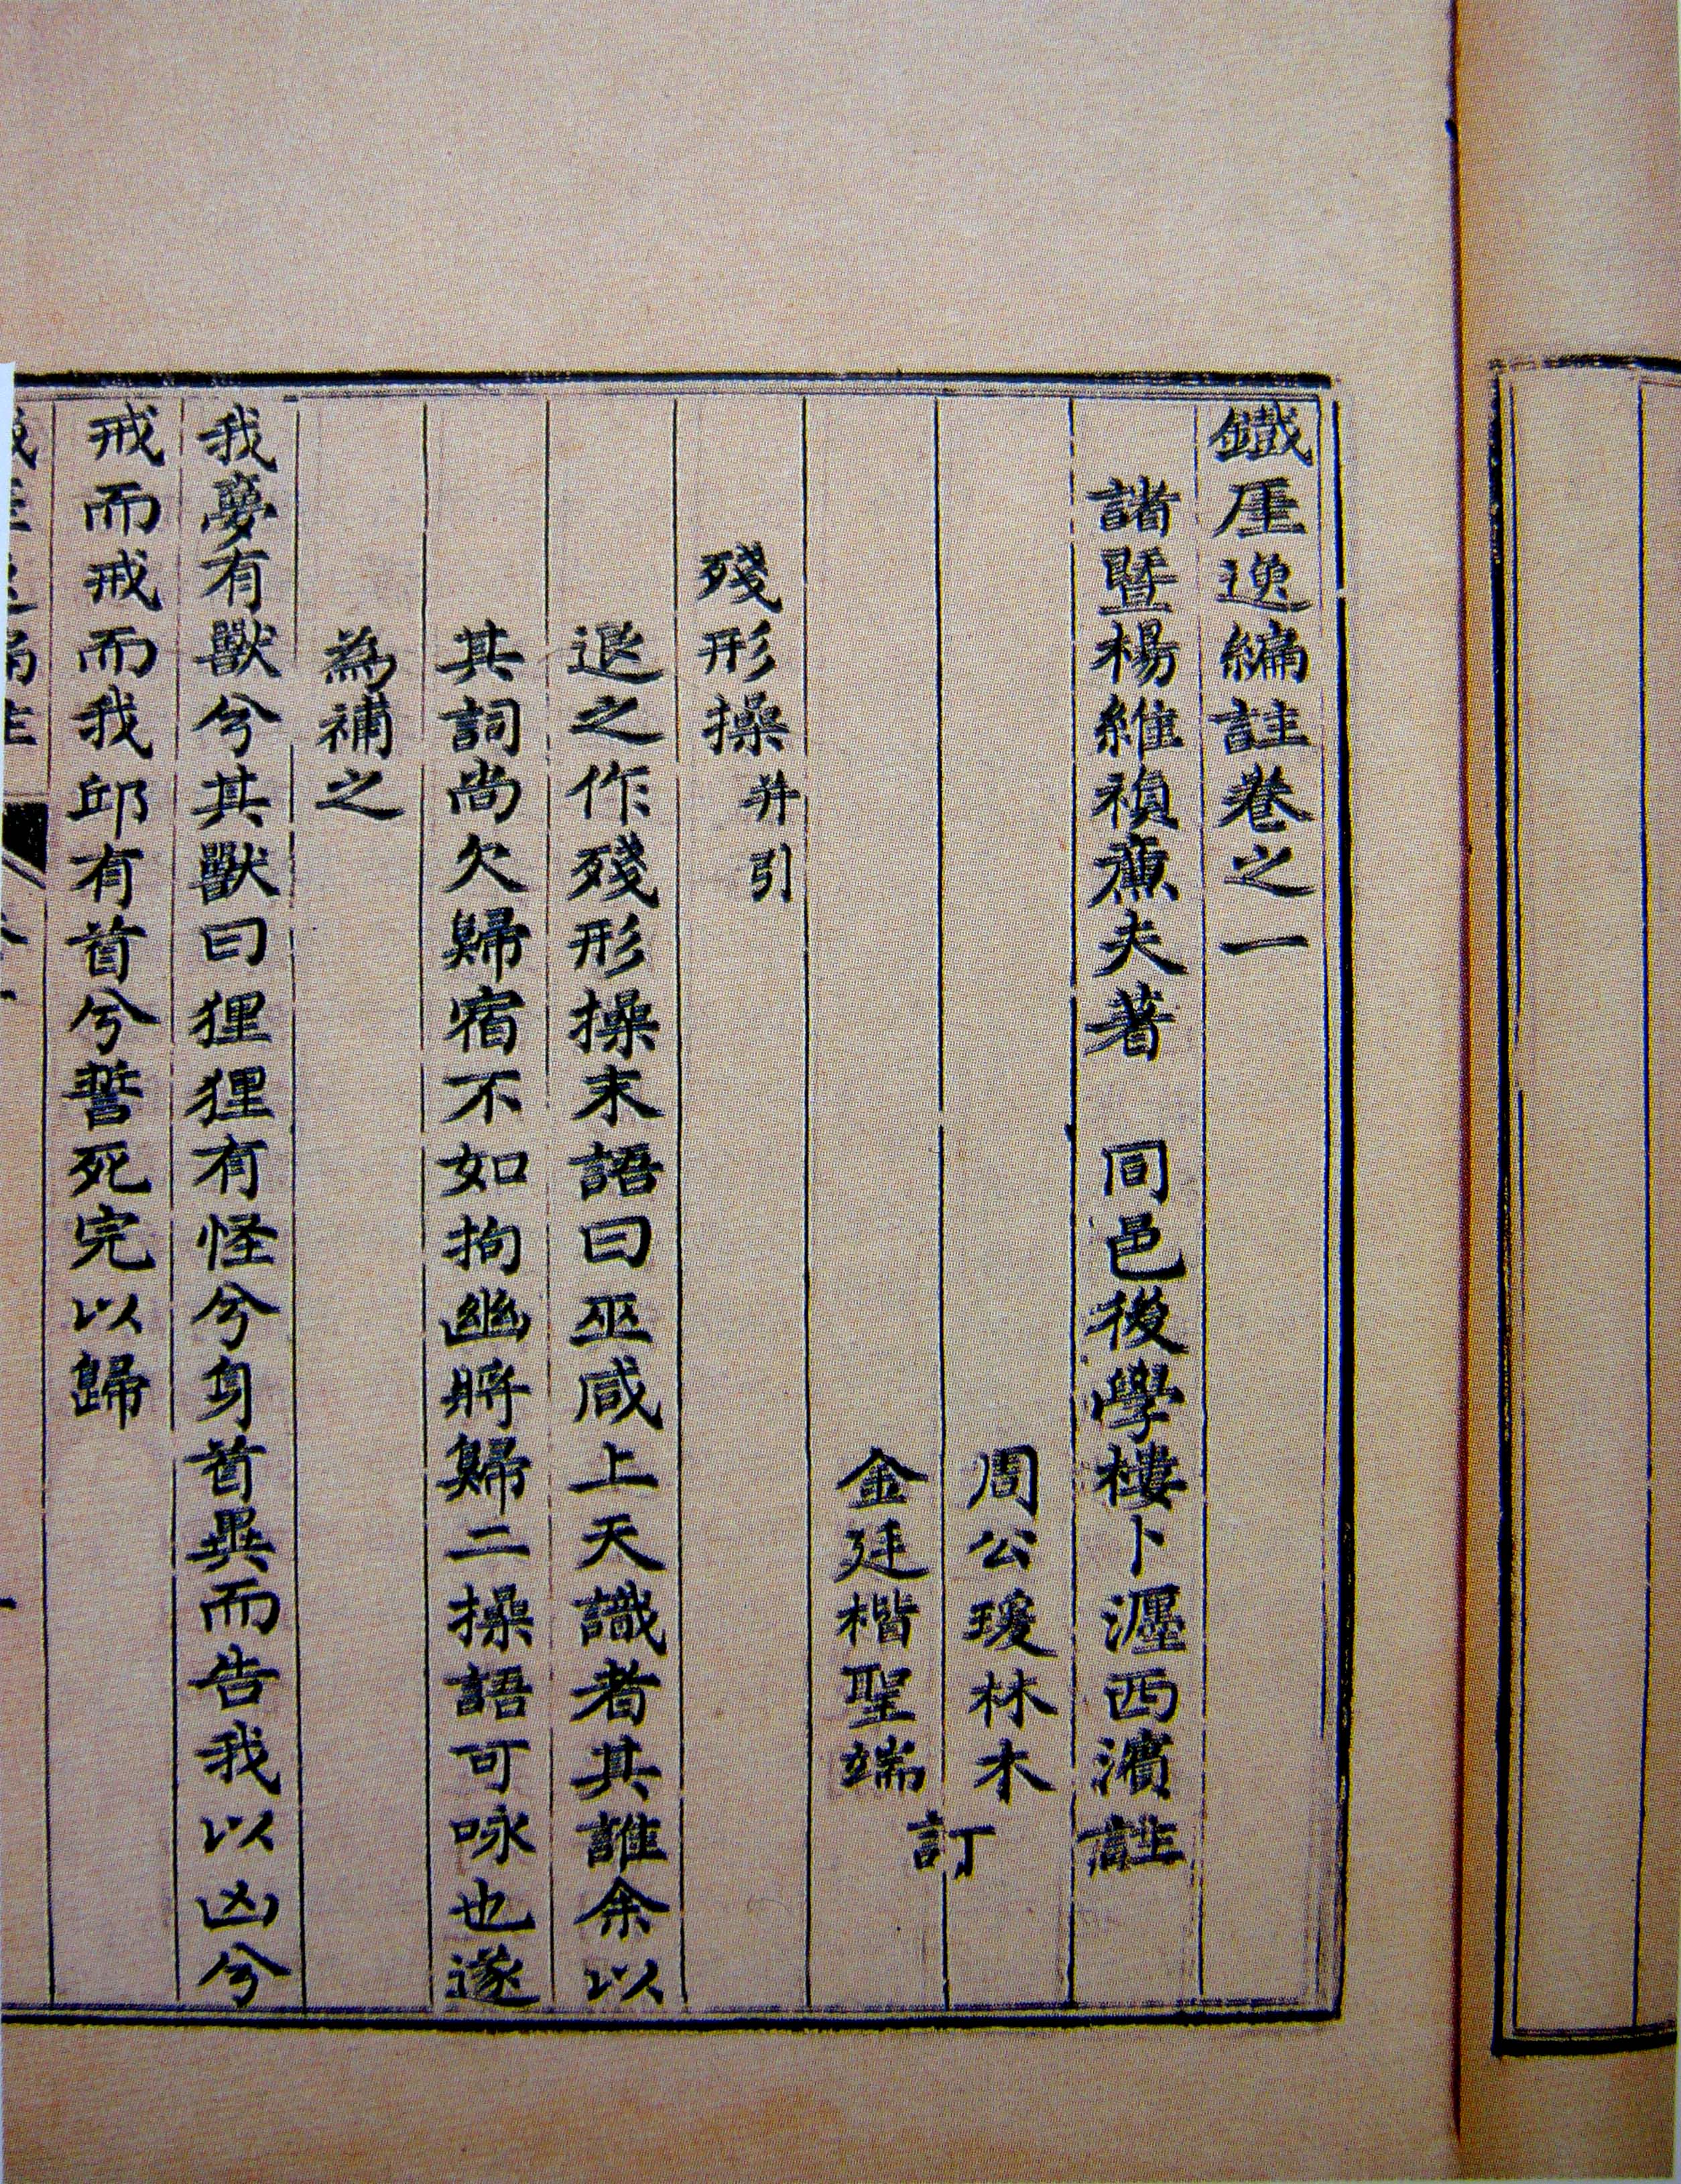 鐵厓逸編註卷之一
諸暨楊維禎廉夫著 同邑後學樓卜瀍西濱註
周公瑗林木
金廷楷聖端
訂
殘形操并引
退之作殘形操末語曰巫咸上天識者其誰余以
其詞尚欠歸宿不如拘幽將歸二操語可咏也遂
為補之
我夢有獸兮其獸曰狸狸有怪兮身首異而告我以凶兮
戒而戒而我邱有首兮誓死完以歸